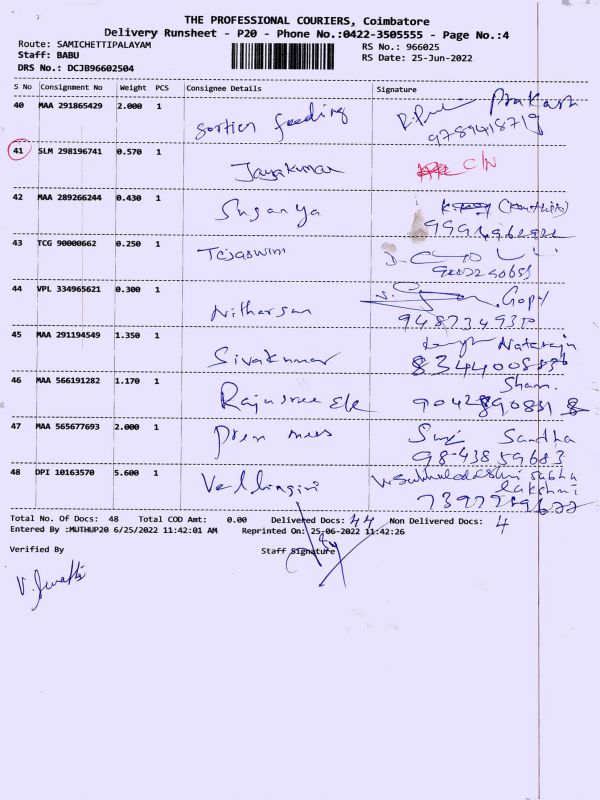 THE PROFESSIONAL COURIERS, Coimbatore
Delivery Runsheet - P20 - Phone No.:0422-3505555 - Page No.:4
Route: SAMICHETTIPALAYAM
RS No.: 966025
Staff: BABU
RS Date: 25-Jun-2022
DRS No.: DCJB96602504
S No Consignment No Weight PCS Consignee Details Signature
40 MAA 291865429 2.000 1 feeding Prakash
9789418719
41 SLM 298196741 0.570 1 Jayakumar C/N
42 MAA 289266244 0.430 1 Suganya
43 TCG 90000662 0.250 1 Tejaswini
44 VPL 334965621 0.300 1 Nitharsan Gopy
9487349350
45 MAA 291194549 1.350 1 Sivakumar Nataraju
46 MAA 566191282 1.170 1 Rajasree Ele Sham.
47 MAA 565677693 2.000 1 Sandha
98-43859683
48 DPI 10163570 5.600 1 Vellingiri
Total No. Of Docs: 48 Total COD Amt: 0.00 Delivered Docs: 44 Non Delivered Docs: 4
Entered By :MUTHUP20 6/25/2022 11:42:01 AM Reprinted On: 25-06-2022 11:42:26
Verified By Staff Signature